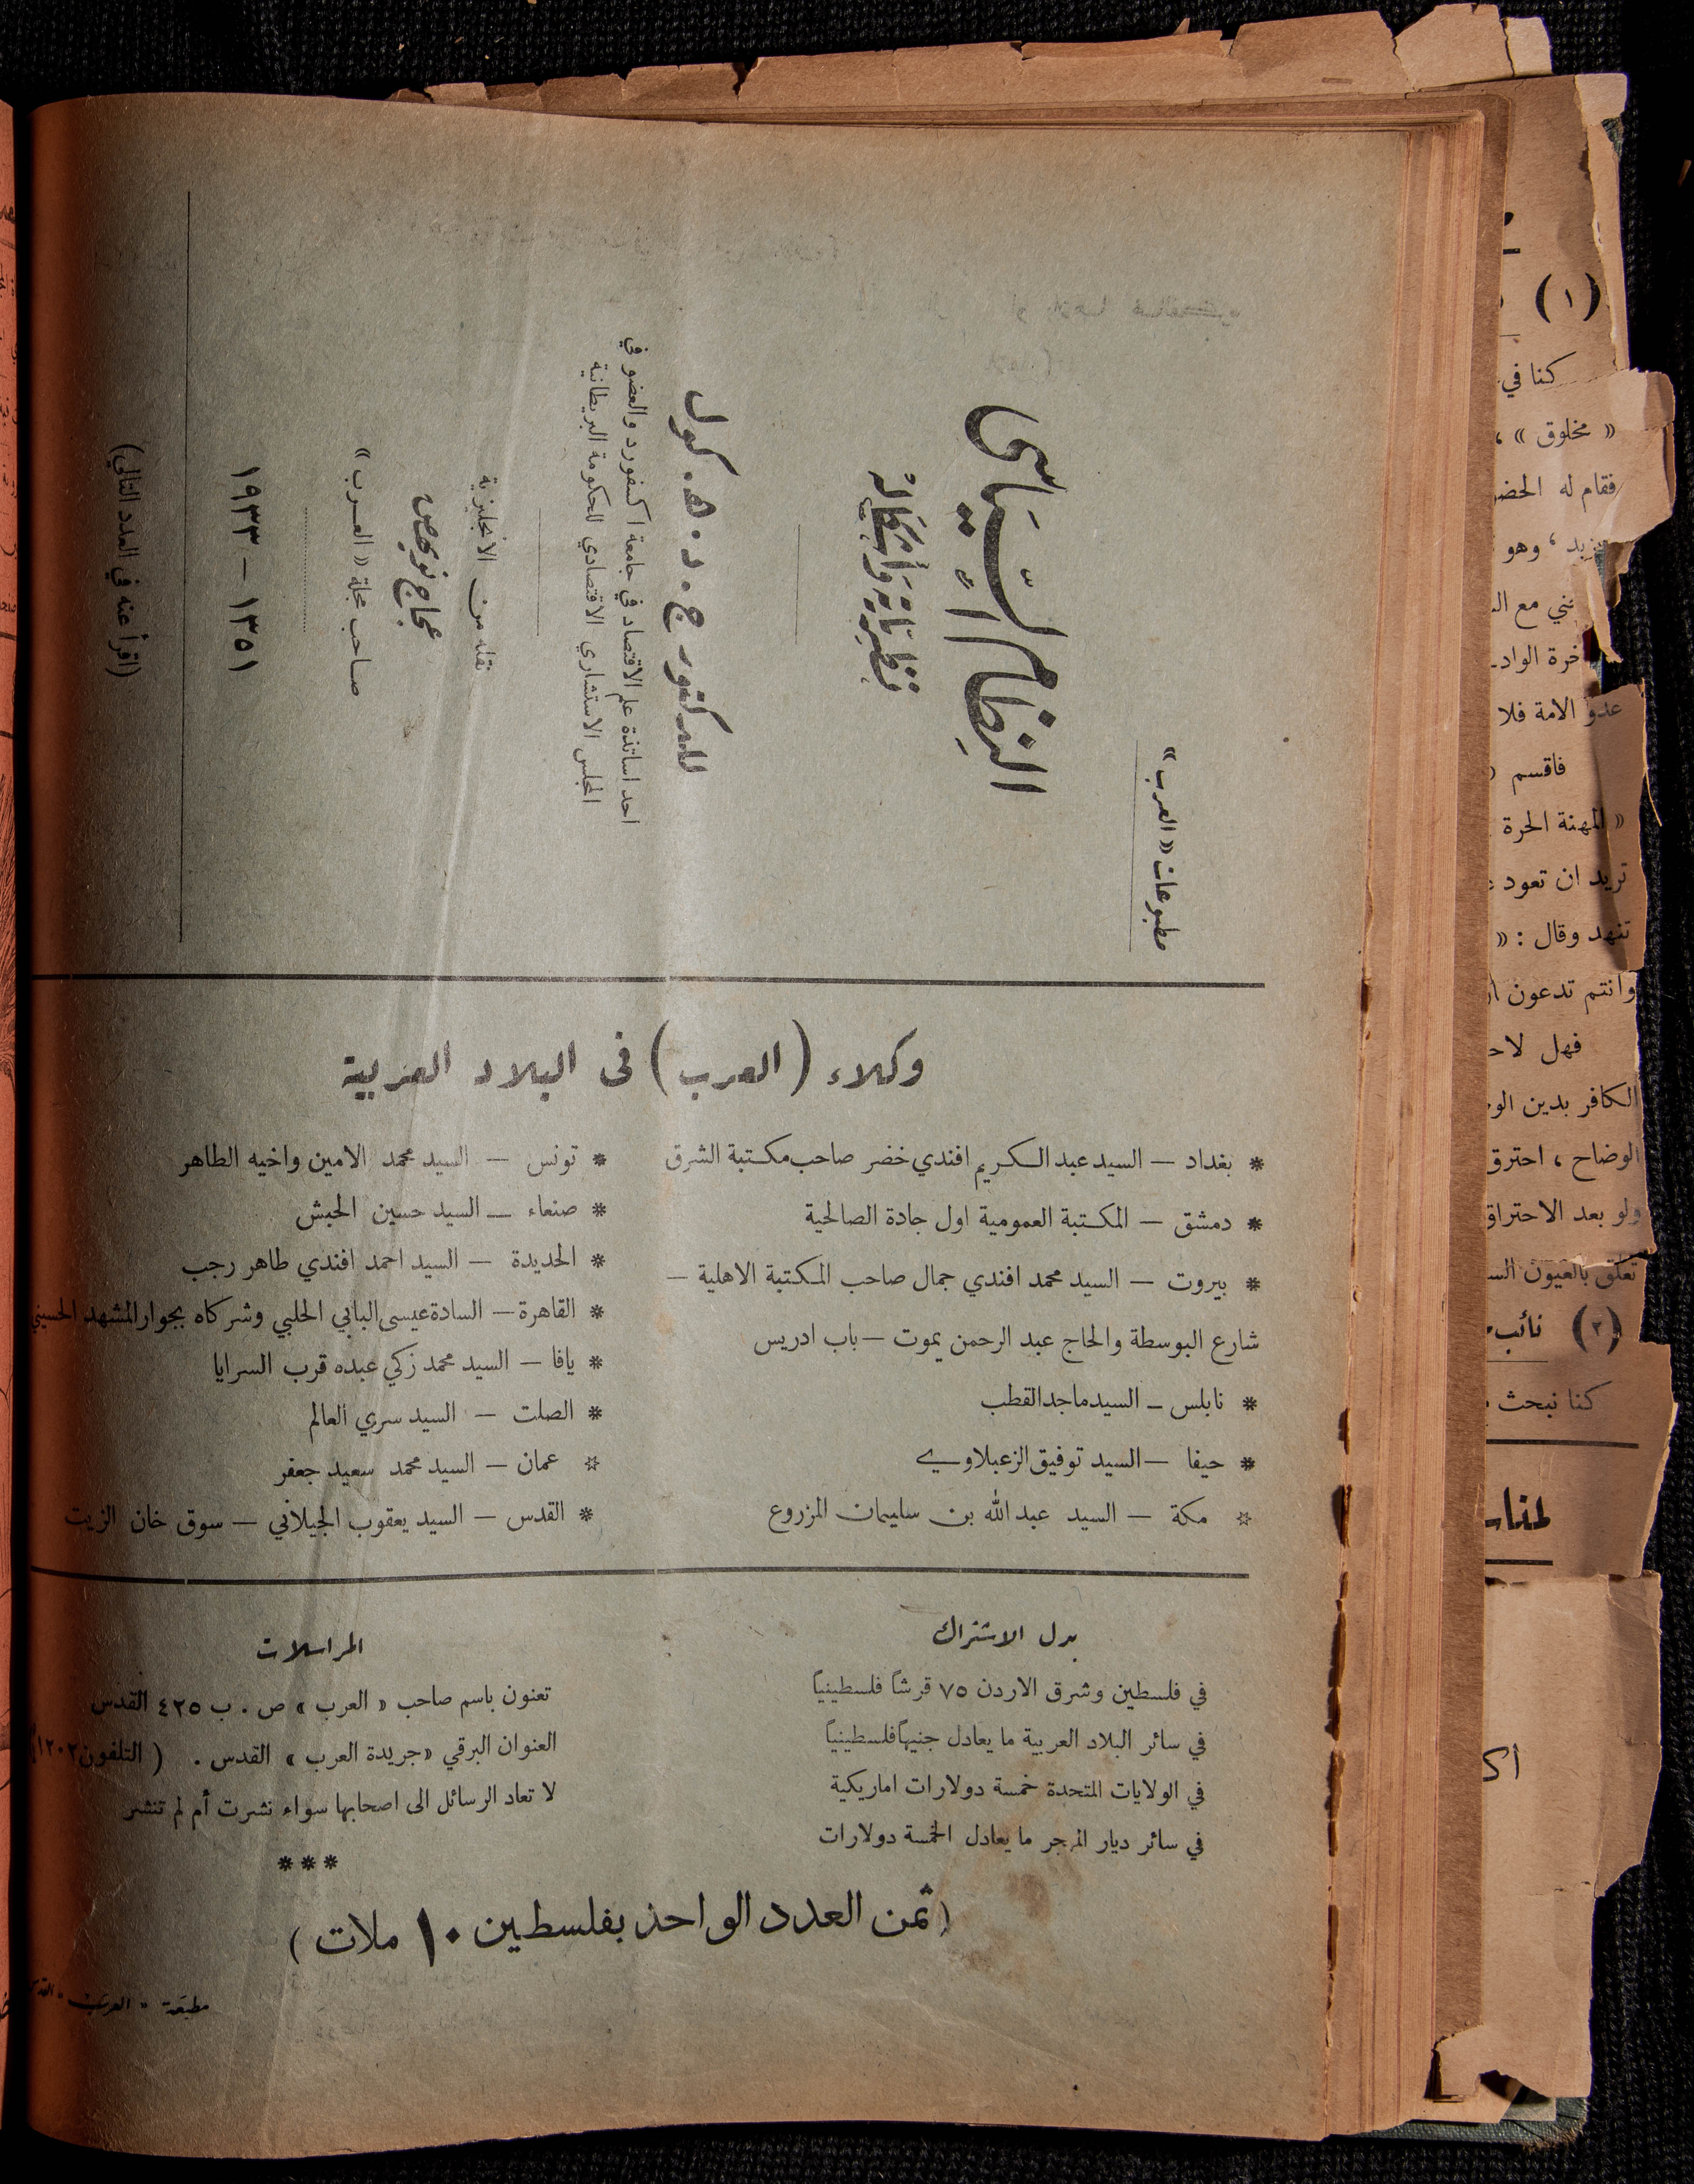 مطبوعات «العرب»
النظام السياسي
نظرياته وأشكاله
للدكتور ج. د. ه. كول
احد اساتذة علم الاقتصاد في جامعة اكسفورد والعضو في
المجلس الاستشاري الاقتصادي للحكومة البريطانية
نقله من الانجليزية
عجاج نويهض
صاحب مجلة «العرب»
١٣٥١ — ١٩٣٣
(اقرأ عنه في العدد التالي)
وكلاء (العرب) في البلاد العربية
* بغداد — السيد عبد الكريم افندي خضر صاحب مكتبة الشرق
* دمشق — المكتبة العمومية اول جادة الصالحية
* بيروت — السيد محمد افندي جمال صاحب المكتبة الاهلية —
شارع البوسطة والحاج عبد الرحمن يموت — باب ادريس
* نابلس — السيد ماجد القطب
* حيفا — السيد توفيق الزعبلاوي
* مكة — السيد عبد الله بن سليمان المزروع
* تونس — السيد محمد الامين واخيه الطاهر
* صنعاء — السيد حسين الحبش
* الحديدة — السيد احمد افندي طاهر رجب
* القاهرة — السادة عيسى البابي الحلبي وشركاه بجوار المشهد الحسيني
* يافا — السيد محمد زكي عبده قرب السرايا
* الصلت — السيد سري العالم
* عمان — السيد محمد سعيد جعفر
* القدس — السيد يعقوب الجيلاني — سوق خان الزيت
بدل الاشتراك
في فلسطين وشرق الاردن ٧٥ قرشاً فلسطينياً
في سائر البلاد العربية ما يعادل جنيهاً فلسطينياً
في الولايات المتحدة خمسة دولارات اماريكية
في سائر ديار المهجر ما يعادل الخمسة دولارات
المراسلات
تعنون باسم صاحب «العرب» ص . ب ٤٢٥ القدس
العنوان البرقي «جريدة العرب» القدس . (التلفون ١٢٠٢)
لا تعاد الرسائل الى اصحابها سواء نشرت أم لم تنشر
***
(ثمن العدد الواحد بفلسطين ١٠ ملات)
مطبعة «العرب» القدس
(١)
كنا في
«مخلوق» ،
فقام له الحضر
وهو
ني مع
خرة الواد
عدو الامة فلا
فاقسم
«المهنة الحرة
تريد ان تعود
تنهد وقال : «
وانتم تدعون
فهل لاح
الكافر بدين الو
الوضاح ، احترق
ولو بعد الاحتراق
تعلق بالعيون الس
(٢) نائب
كنا نبحث
لمناس
أك